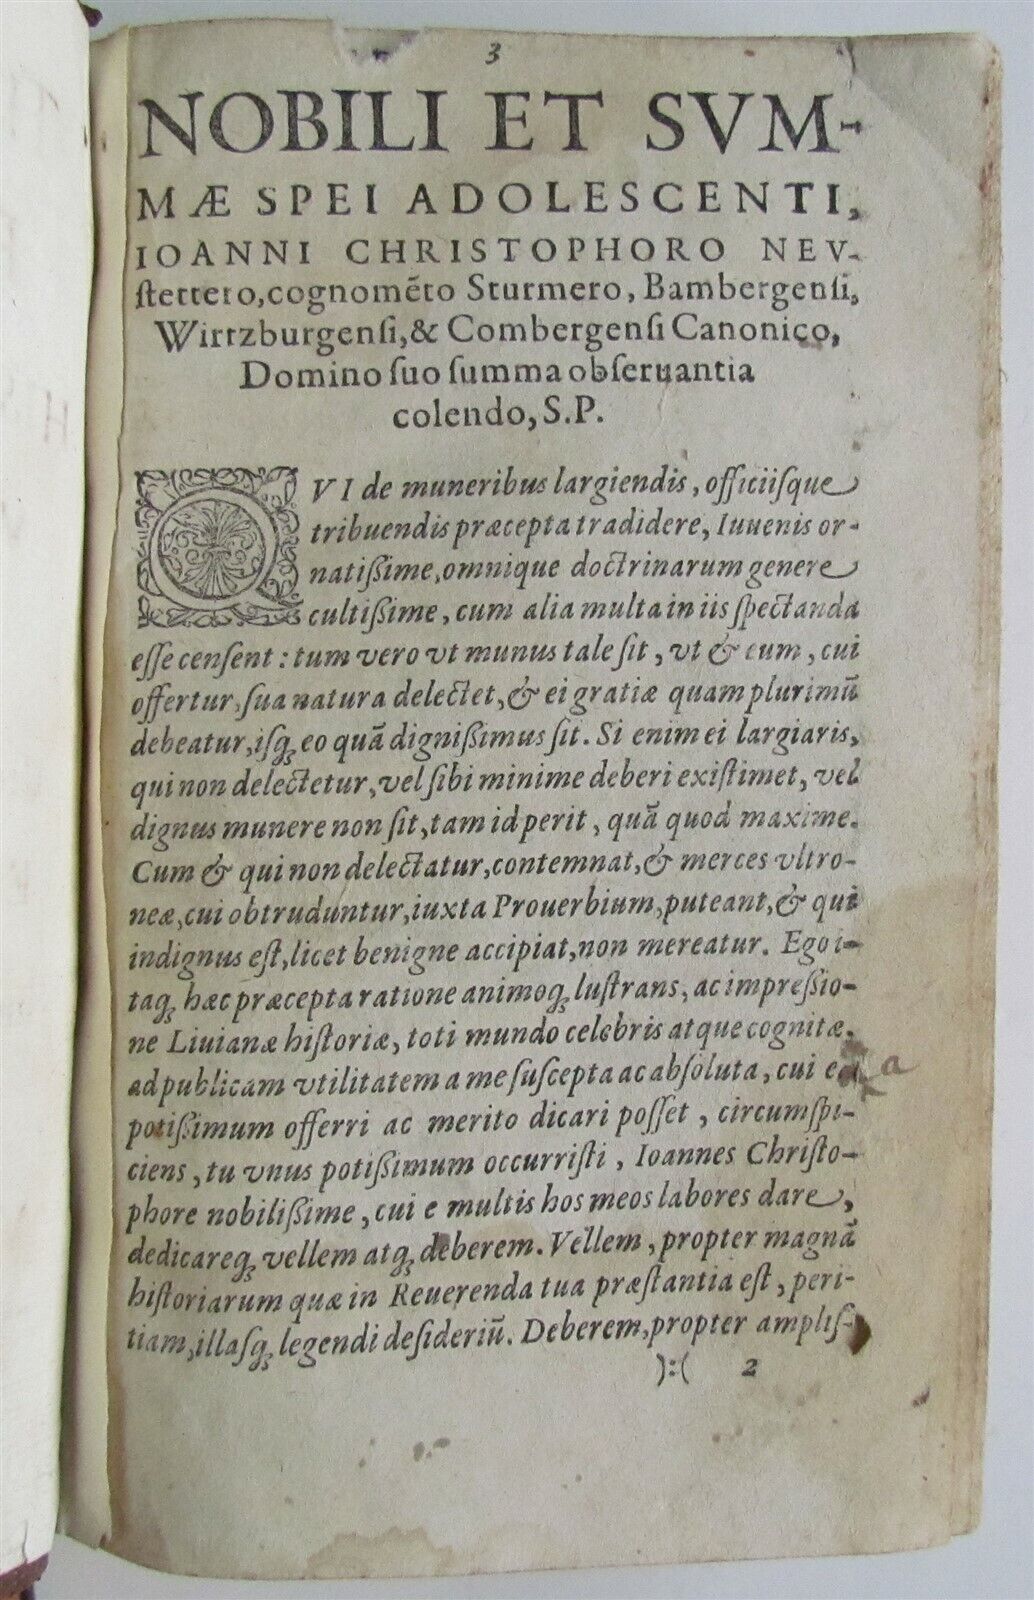 3
NOBILI ET SVM-
MÆ SPEI ADOLESCENTI,
IOANNI CHRISTOPHORO NEV-
ſtettero, cognomẽto Sturmero, Bambergenſi,
Wirtzburgenſi, & Combergenſi Canonico,
Domino ſuo ſumma obſeruantia
colendo, S.P.
QVI de muneribus largiendis, officiiſque
tribuendis præcepta tradidere, Iuuenis or-
natißime, omnique doctrinarum genere
cultißime, cum alia multa in iis ſpectanda
eſſe cenſent: tum vero vt munus tale ſit, vt & eum, cui
offertur, ſua natura delectet, & ei gratiæ quamplurimũ
debeatur, iſq; eo quã dignißimus ſit. Si enim ei largiaris,
qui non delectetur, vel ſibi minime deberi exiſtimet, vel
dignus munere non ſit, tam id perit, quã quod maxime.
Cum & qui non delectatur, contemnat, & merces vltro-
neæ, cui obtruduntur, iuxta Prouerbium, puteant, & qui
indignus eſt, licet benigne accipiat, non mereatur. Ego i-
taq; hæc præcepta ratione animoq; luſtrans, ac impreßio-
ne Liuianæ hiſtoriæ, toti mundo celebris atque cognitæ,
ad publicam vtilitatem a me ſuſcepta ac abſoluta, cui ea a
potißimum offerri ac merito dicari poſſet, circumſpi-
ciens, tu vnus potißimum occurriſti, Ioannes Chriſto-
phore nobilißime, cui e multis hos meos labores dare,
dedicareq; vellem atq; deberem. Vellem, propter magnã
hiſtoriarum quæ in Reuerenda tua præſtantia eſt, peri-
tiam, illaſq; legendi deſideriũ. Deberem, propter ampliſ-
):( 2